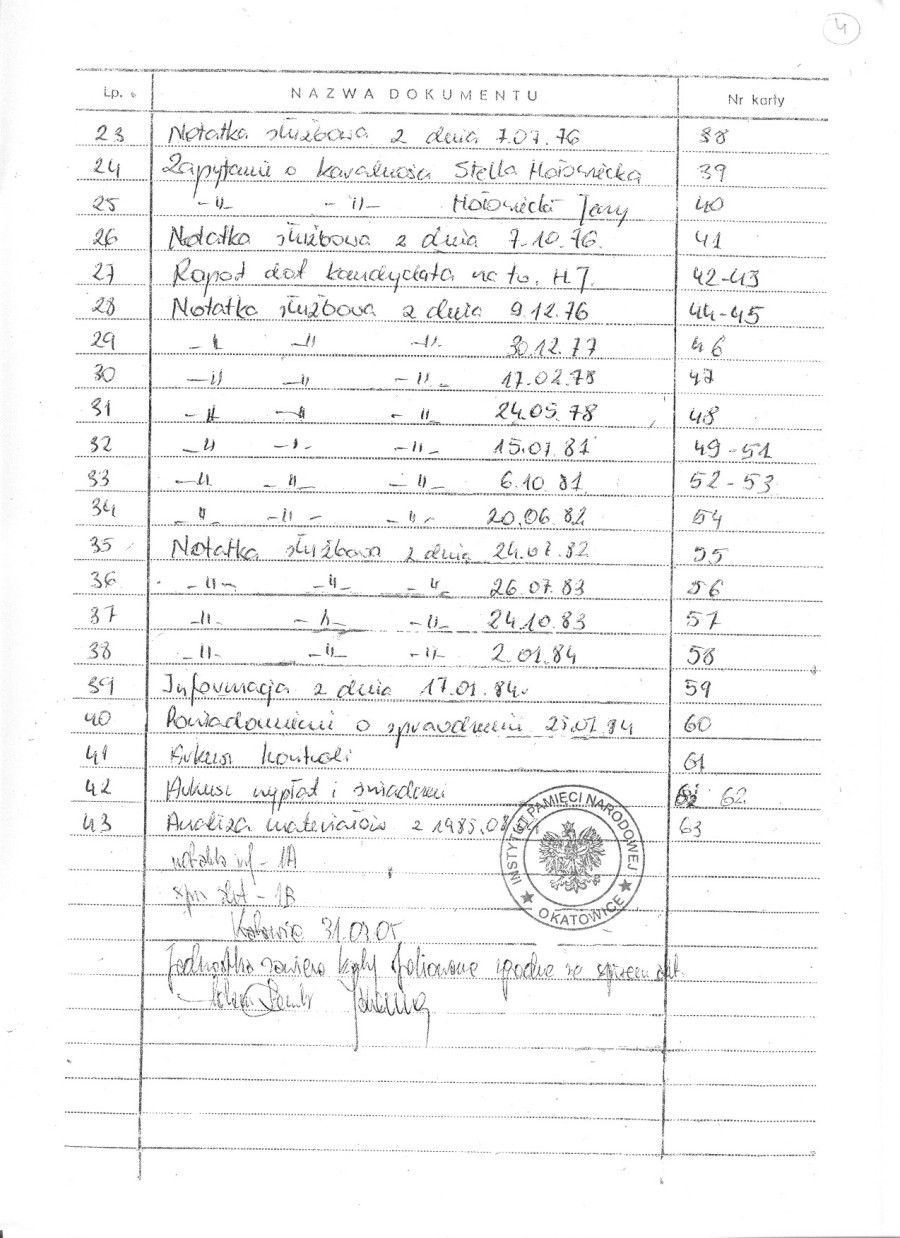 4
Lp. NAZWA DOKUMENTU Nr karty
23 Notatka służbowa z dnia 7.07.76 38
24 Zapytanie o karalności Stella Hołowniecka 39
25 -"- -"- Jerzy 40
26 Notatka służbowa z dnia 7.10.76. 41
27 Raport dot kandydata na to. H.J. 42-43
28 Notatka służbowa z dnia 9.12.76 44-45
29 -"- -"- -"- 30.12.77 46
30 -"- -"- -"- 17.02.78 47
31 -"- -"- -"- 24.05.78 48
32 -"- -"- -"- 15.07.81 49-51
33 -"- -"- -"- 6.10.81 52-53
34 -"- -"- -"- 20.06.82 54
35 Notatka służbowa z dnia 24.07.82 55
36 -"- -"- -"- 26.07.83 56
37 -"- -"- -"- 24.10.83 57
38 -"- -"- -"- 2.01.84 58
39 Informacja z dnia 17.01.84. 59
40 Powiadomienie o sprawdzeniu 84 60
41 Arkusz kontroli 61
42 Arkusz wypłat i świadczeń 62
43 Analiza materiałów z 1985.08 63
INSTYTUT PAMIĘCI NARODOWEJ
O KATOWICE
notatka inf - 1A
spis akt - 1B
Katowice 31.03.05
Jednostka zawiera karty foliowane zgodne ze spisem akt.